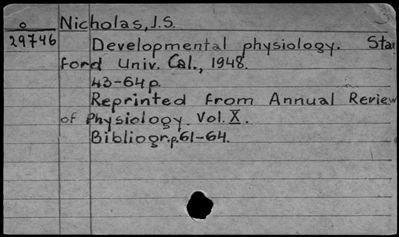 o Nicholas, J.S.
29746 Developmental physiology. Stan
ford Univ. Cal., 1948.
43-64 p.
Reprinted from Annual Review
of Physiology. Vol. X.
Bibliogr.p.61-64.